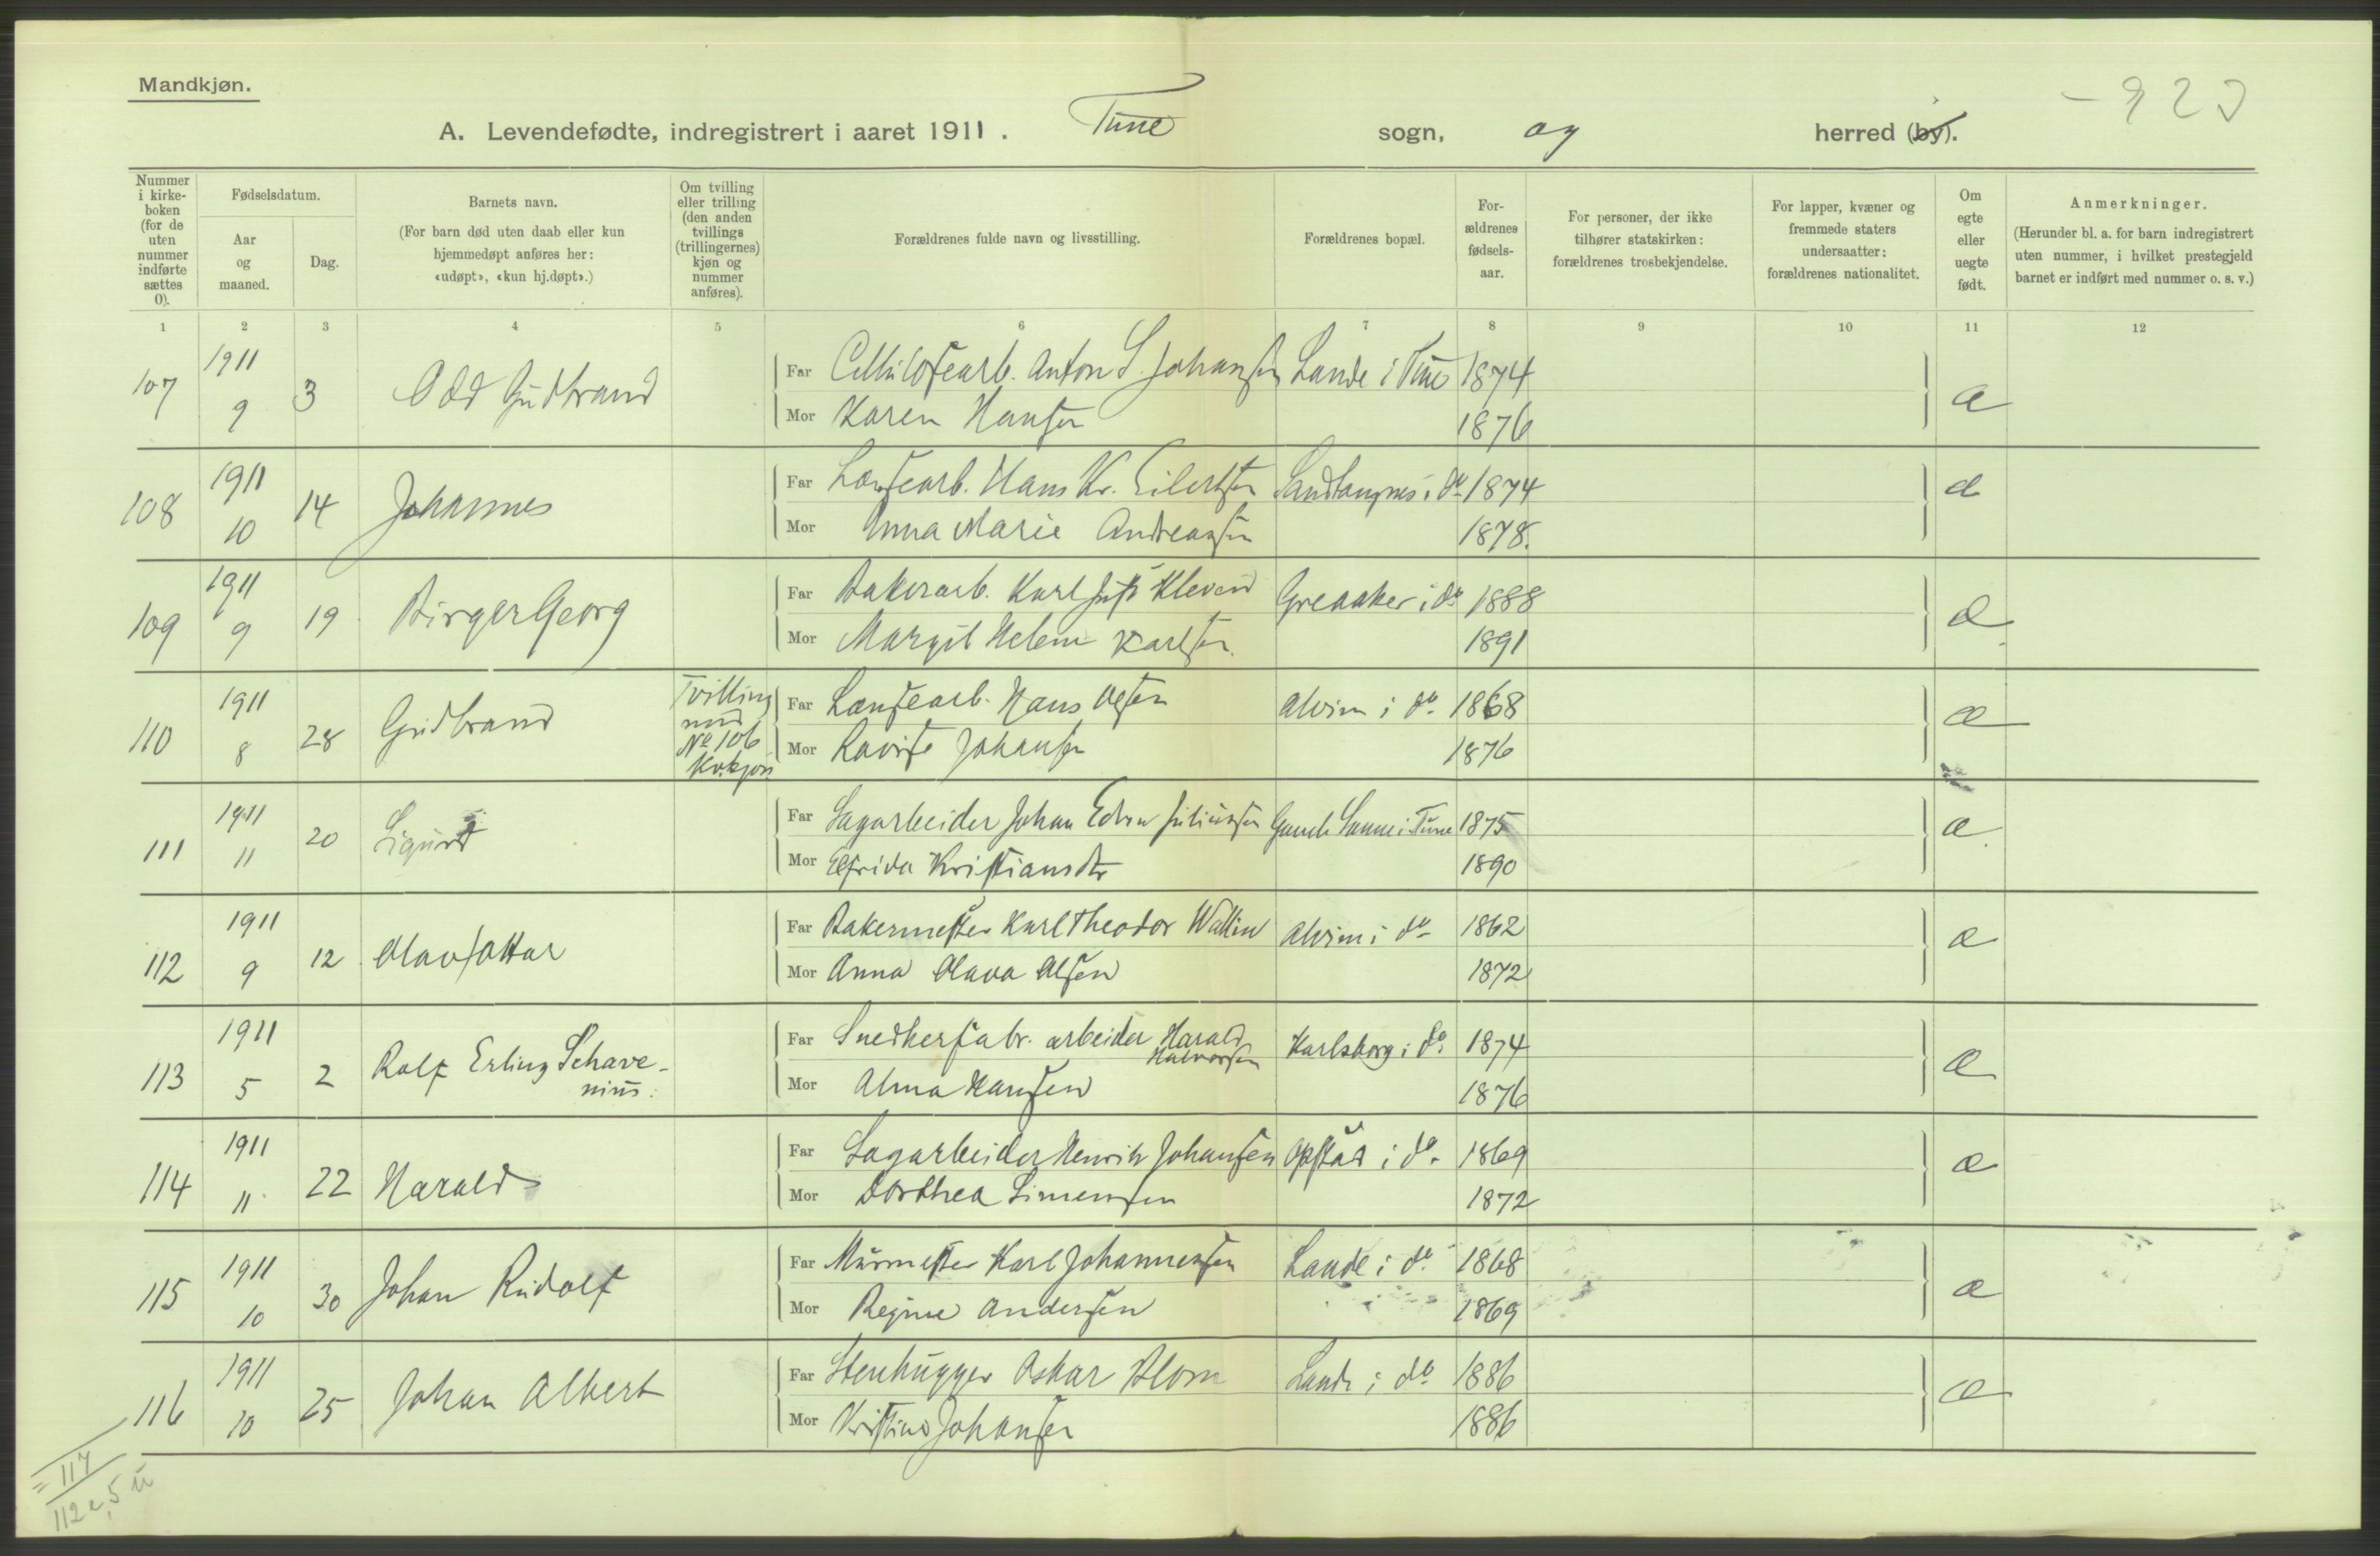 Mandkjøn.
- 923
A. Levendefødte, indregistrert i aaret 1911. Tune sogn, og herred (by).
Nummer i kirkeboken (for de uten nummer indførte sættes 0).
Fødselsdatum.
Aar og maaned.
Dag.
Barnets navn.
(For barn død uten daab eller kun hjemmedøpt anføres her: «udøpt», «kun hj.døpt».)
Om tvilling eller trilling (den anden tvillings (trillingernes) kjøn og nummer anføres).
Forældrenes fulde navn og livsstilling.
Forældrenes bopæl.
Forældrenes fødselsaar.
For personer, der ikke tilhører statskirken: forældrenes trosbekjendelse.
For lapper, kvæner og fremmede staters undersaatter: forældrenes nationalitet.
Om egte eller uegte født.
Anmerkninger.
(Herunder bl. a. for barn indregistrert uten nummer, i hvilket prestegjeld barnet er indført med nummer o. s. v.)
1 2 3 4 5 6 7 8 9 10 11 12
107 1911 9 3 Odd Gudbrand Far Cellulosearb. Anton S. Johansen Lande i Tune 1874 æ
Mor Karen Hansen 1876
108 1911 10 14 Johannes Far Lensearb. Hans Kr. Eilertsen Sandtangnes i do 1874 æ
Mor Anna Marie Andreassen 1878.
109 1911 9 19 Birger Georg Far Bakerarb. Karl Kleven Greaaker i do 1888 æ
Mor Margit Helene Karlsen. 1891
110 1911 8 28 Gudbrand Tvilling med No 106 Kv.kjøn Far Lensearb. Hans Olsen Alvim i do 1868 æ
Mor Lovise Johansen 1876
111 1911 11 20 Sigurd Far Sagarbeider Johan Edvin Juliussen Gamle Sanne i Tune 1875 æ
Mor Elfrida Kristiansdtr 1890
112 1911 9 12 Olav Ottar Far Bakermester Karl Theodor Wallin Alvim i do 1862 æ
Mor Anna Olava Olsen 1872
113 1911 5 2 Rolf Erling Schavenius. Far Snedkerfabr. arbeider Harald Halvorsen Karlsborg i do 1874 æ
Mor Alma Hansen 1876
114 1911 11 22 Harald Far Sagarbeider Henrik Johansen Opstad i do 1869 æ
Mor Dorthea Simensen 1872
115 1911 10 30 Johan Rudolf Far Murmester Karl Johannessen Lande i do 1868 æ
Mor Regine Andersen 1869
116 1911 10 25 Johan Albert Far Stenhugger Oskar Blom Lande i do 1886 æ
Mor Kristine Johansen 1886
= 117
112 e, 5 u